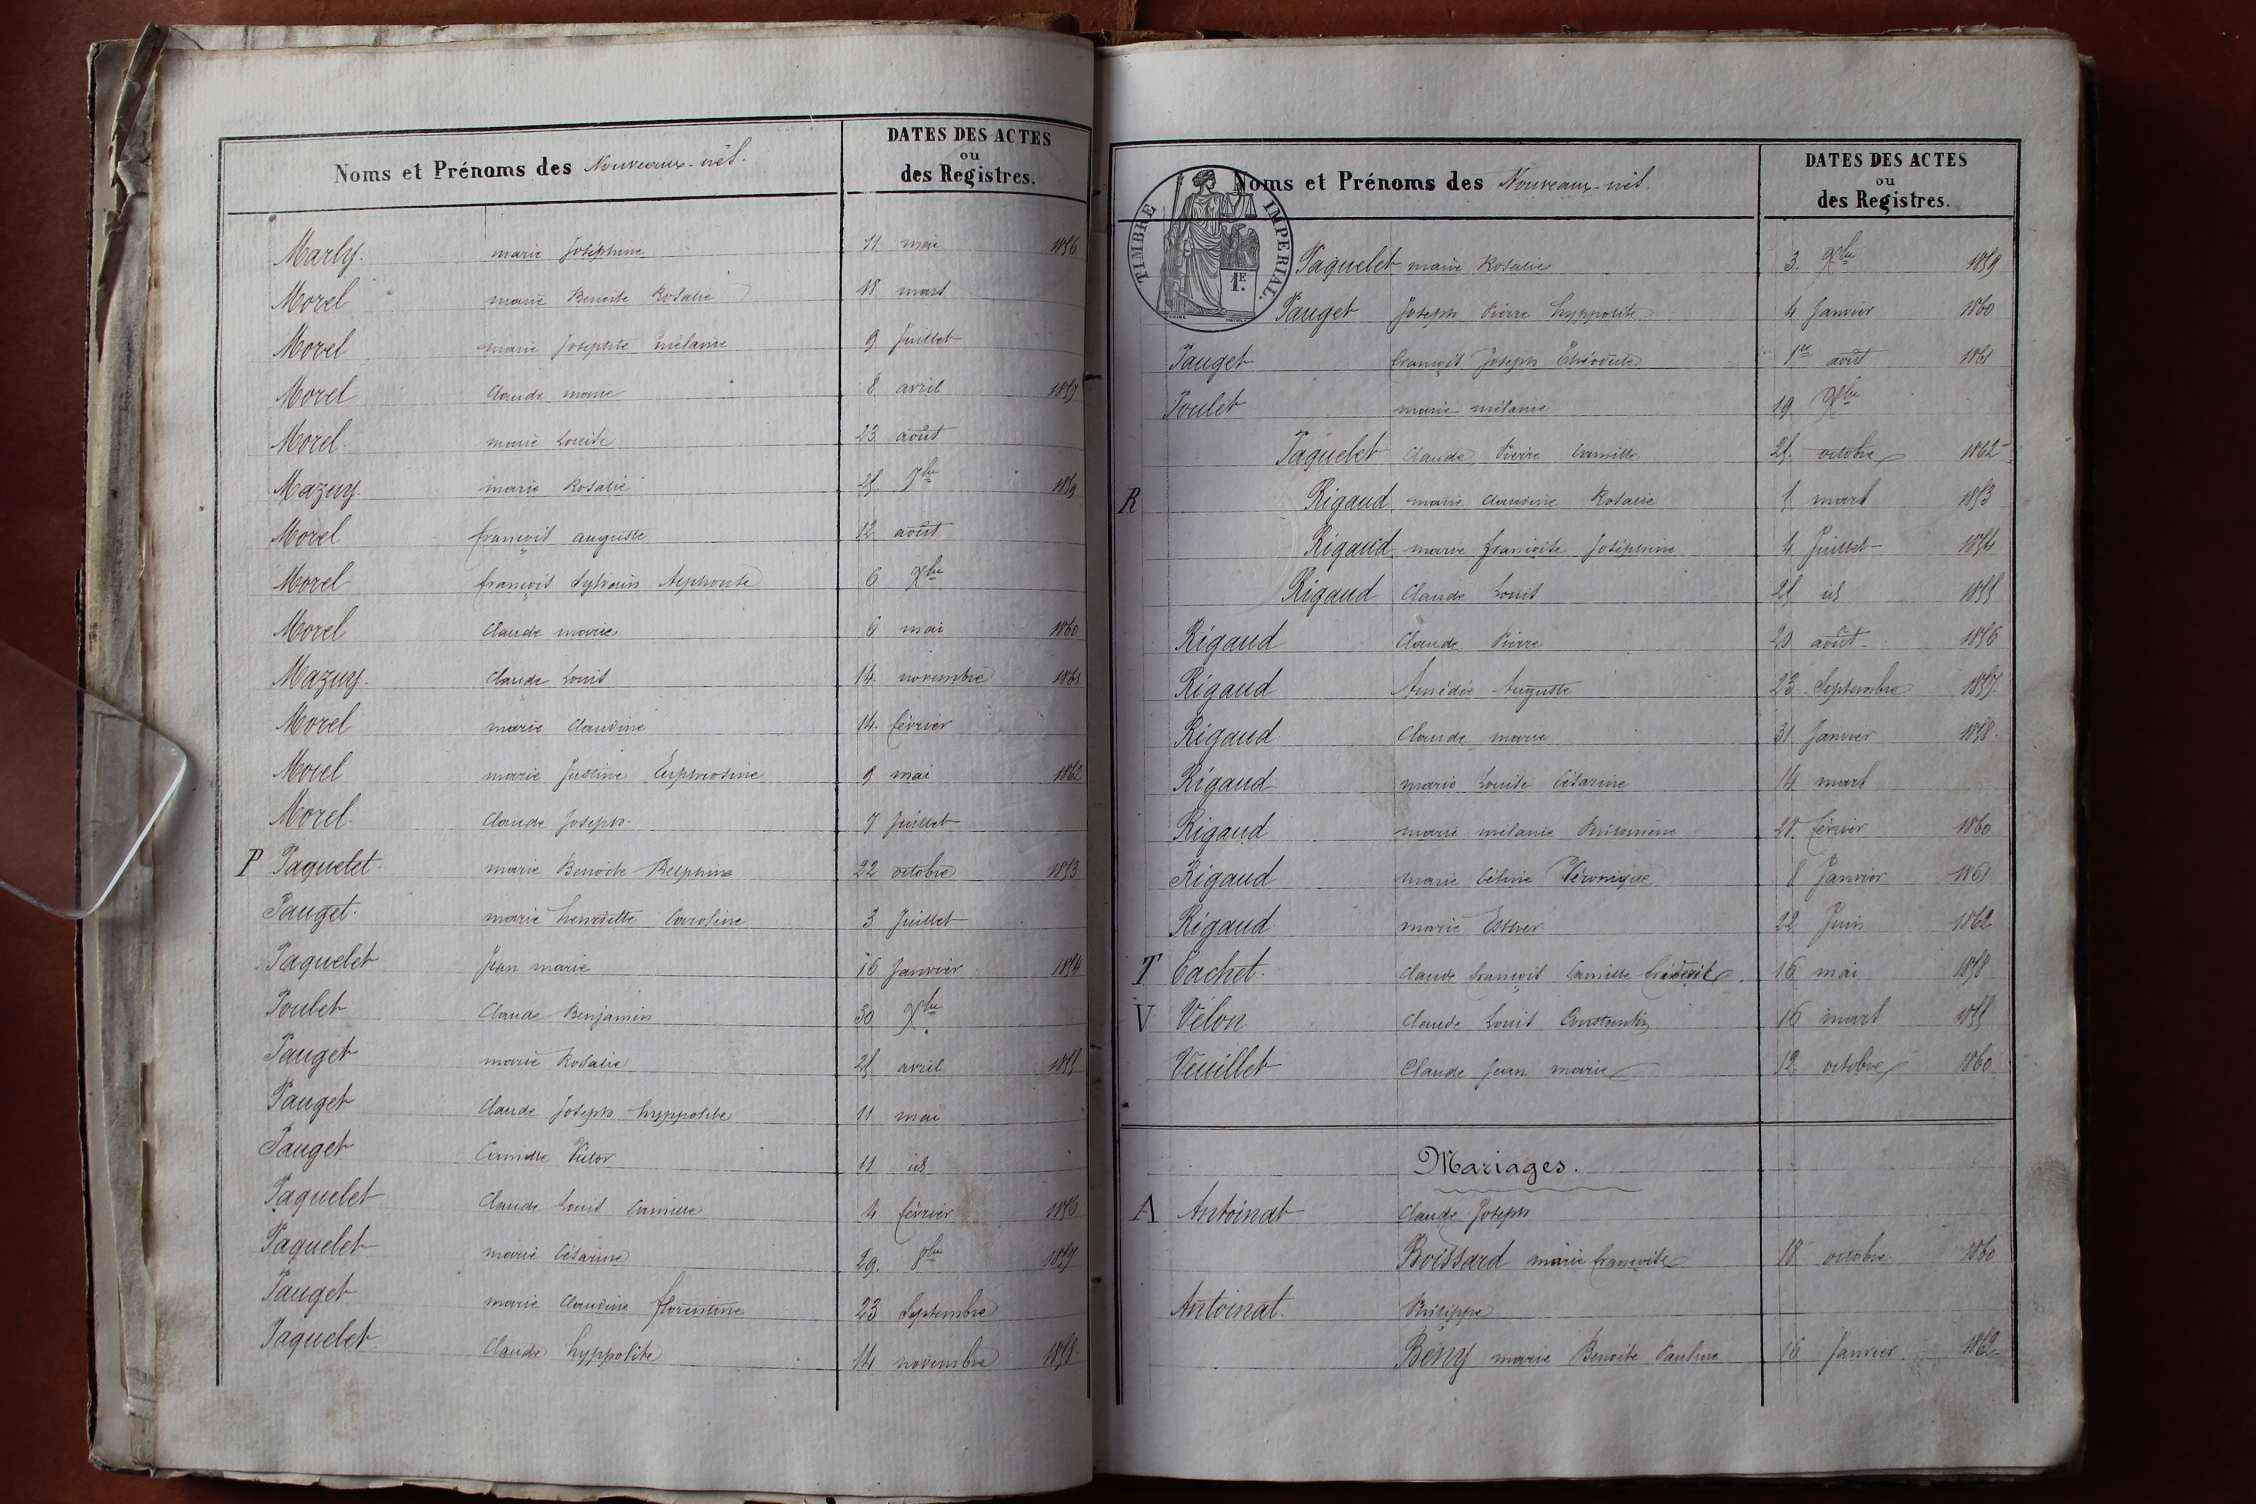 Noms et Prénoms des Nouveaux-nés.
DATES DES ACTES
ou
des Registres.
Marly. marie Joséphine 11 mai 1856
Morel marie Benoite Rosalie 18 mars
Morel marie Josephte mélanie 9 Juillet
Morel Claude marie 8 avril 1857
Morel marie Louise 23 août
Mazuy. marie Rosalie 25 7bre 1859
Morel françois auguste 12 août
Morel françois Sylvain Alphonse 6 Xbre
Morel Claude marie 6 mai 1860
Mazuy. Claude Louis 14 novembre 1861
Morel marie Claudine 14 février
Morel marie Justine Euphrosine 9 mai 1862
Morel Claude Joseph 7 Juillet
P Paquelet marie Benoite Delphine 22 octobre 1853
Pauget. marie henriette Caroline 3 Juillet
Paquelet Jean marie 16 Janvier 1854
Poulet Claude Benjamin 30 Xbre
Pauget marie Rosalie 25 avril 1855
Pauget Claude Joseph hyppolite 11 mai
Pauget Camille Victor 11 id
Paquelet Claude Louis Camille 4 février 1856
Paquelet marie Césarine 29. 8bre 1857
Pauget marie Claudine florentine 23 Septembre
Paquelet Claude hyppolite 14 novembre 1858
TIMBRE IMPERIAL.
1E.
Noms et Prénoms des Nouveaux-nés.
DATES DES ACTES
ou
des Registres.
Paquelet marie Rosalie 3. 9bre 1859
Pauget Joseph Pierre hyppolite 4 Janvier 1860
Pauget françois Joseph Théodule 1er août 1861
Poulet marie mélanie 19 Xbre
Paquelet Claude Pierre Camille 25. octobre 1862
R Rigaud marie Claudine Rosalie 1 mars 1853
Rigaud marie françoise Joséphine 4 Juillet 1854
Rigaud Claude Louis 25 id 1855
Rigaud Claude Pierre 20 août 1856
Rigaud Amédée Auguste 23 Septembre 1857.
Rigaud Claude marie 31 Janvier 1858.
Rigaud marie Louise Césarine 14 mars
Rigaud marie mélanie Philomène 28. février 1860
Rigaud marie Céline Véronique 8 Janvier 1861
Rigaud marie Esther 22 Juin 1862
T Tachet. Claude françois Camille fréderic 16 mai 1858
V Vélon Claude Louis Constantin 16 mars 1855
Veuillet Claude Jean marie 12 octobre 1860
Mariages.
A Antoinat Claude Joseph
Boissard marie françoise 18 octobre 1860
Antoinat. Philippe
Bény marie Benoite Pauline 16 Janvier 1862